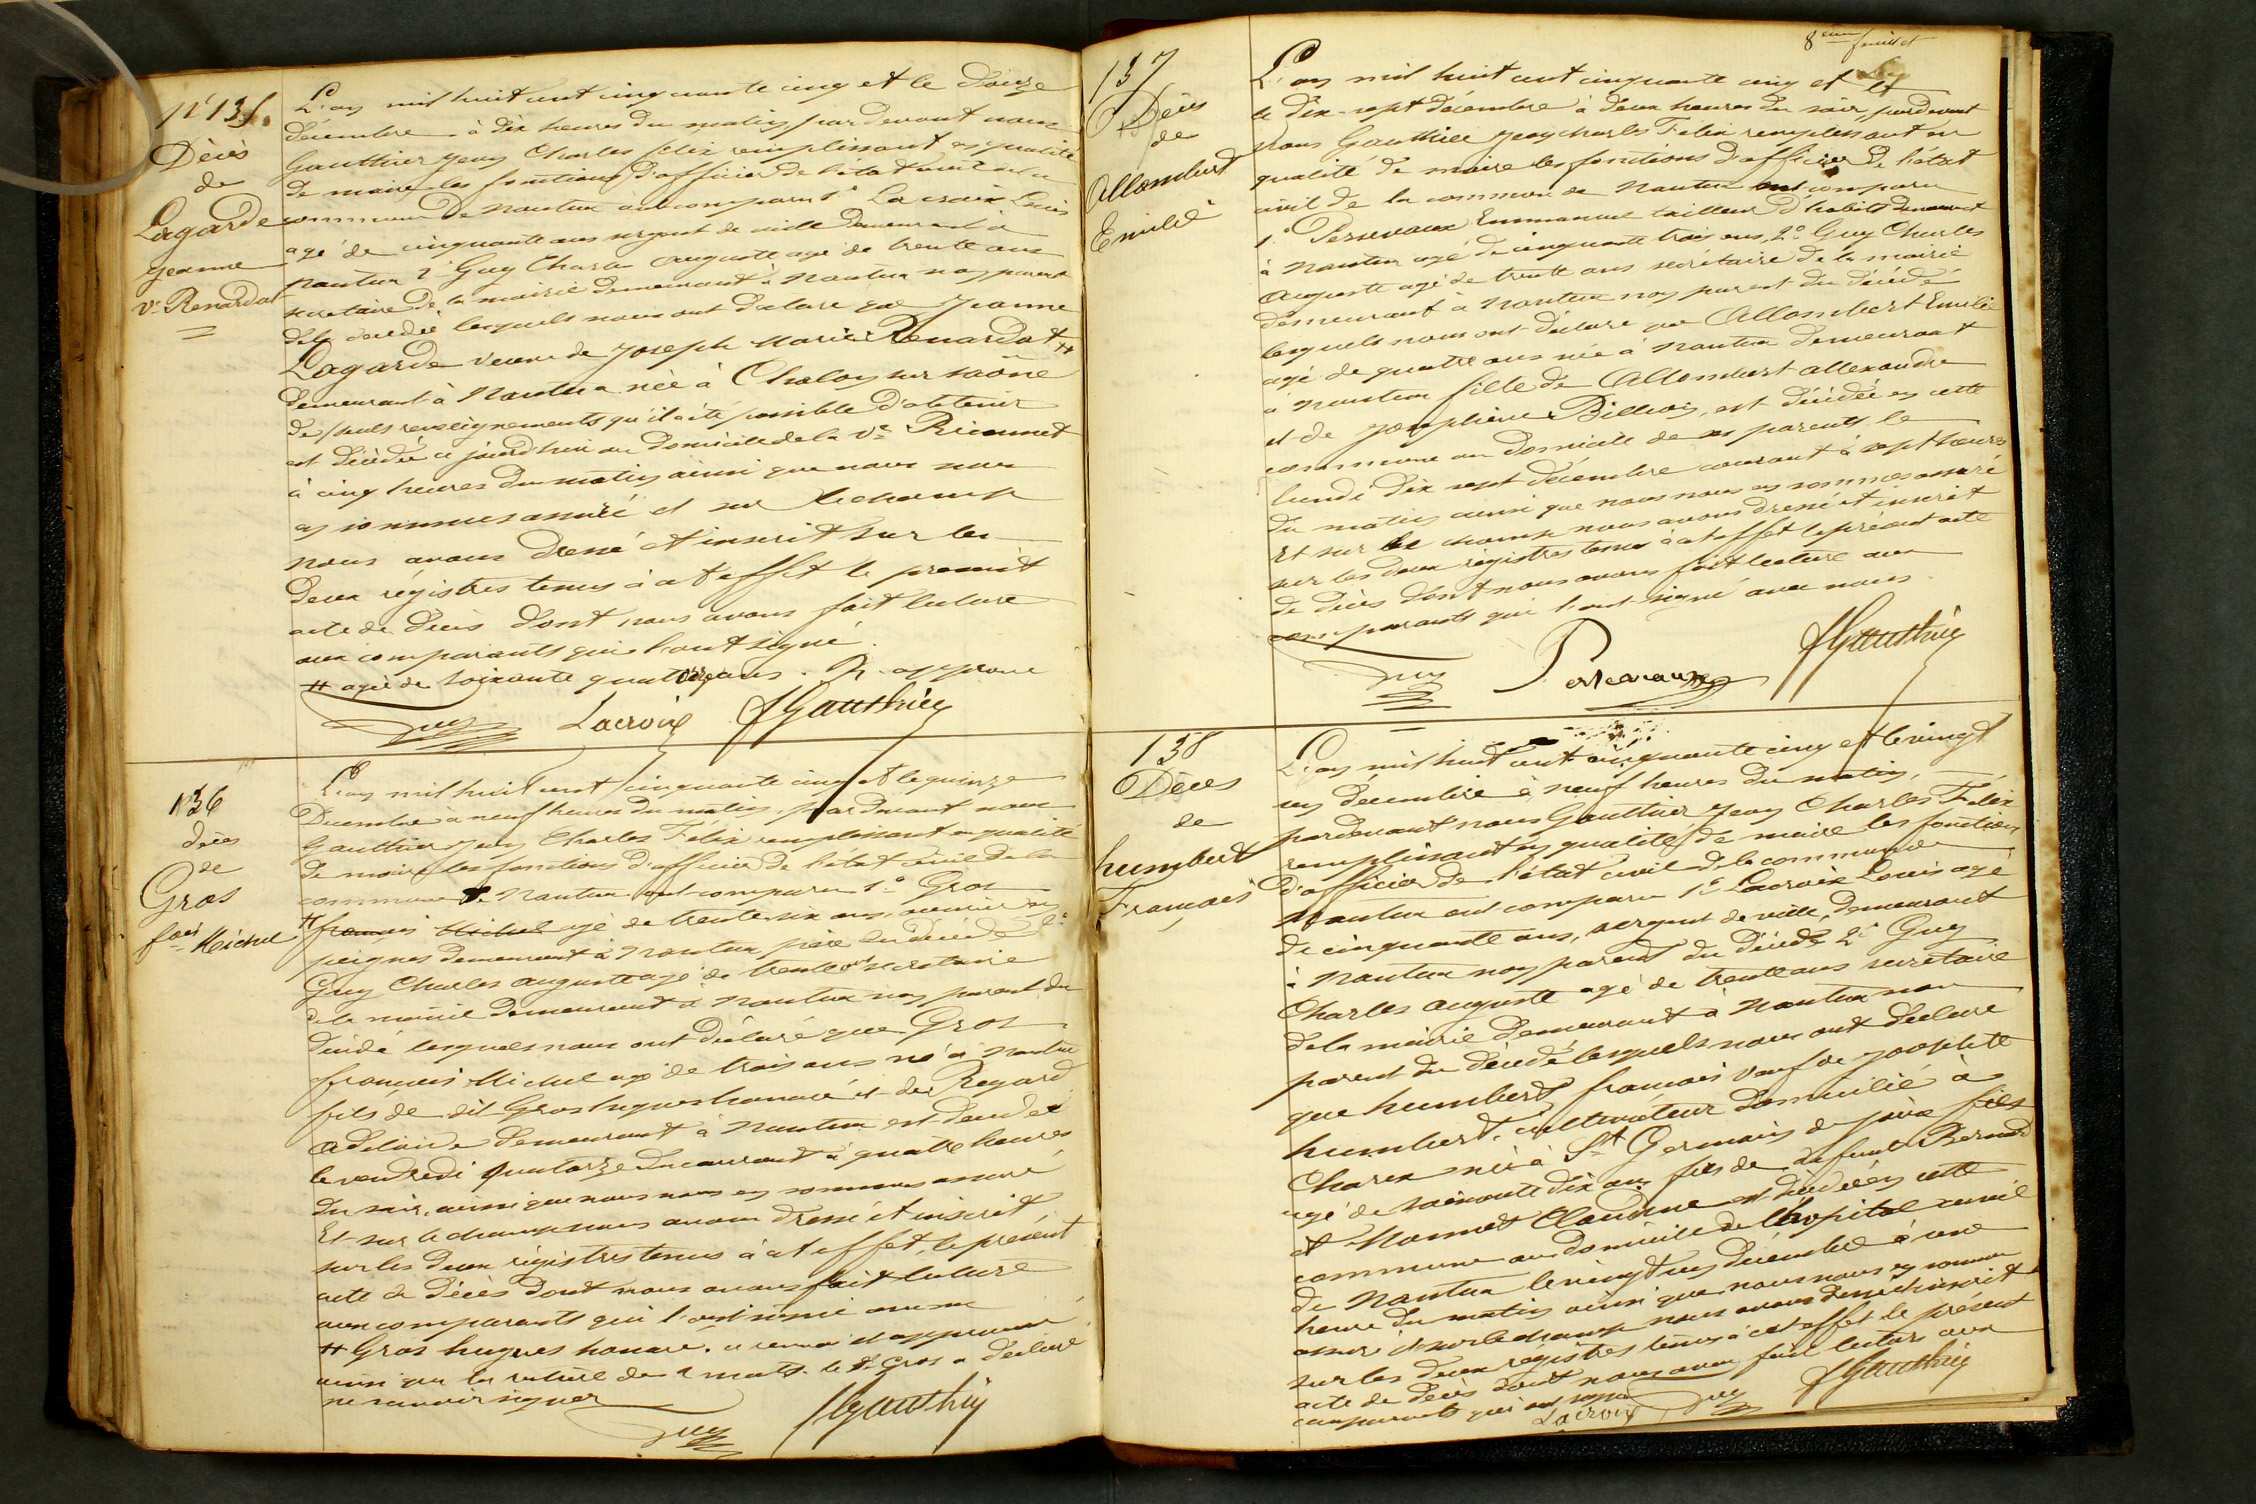 N° 135.
Décès
de
Lagarde
Jeanne
Ve Renardat
L'an mil huit cent cinquante cinq et le douze
décembre à dix heures du matin pardevant nous
Gauthier Jean Charles Félix remplissant en qualité
de maire les fonctions d'officier de l'état civil de la
commune de Nantua ont comparu 1° Lacroix Louis
agé de cinquante ans sergent de ville demeurant à
Nantua 2° Guy Charles Auguste agé de trente ans
secrétaire de la mairie demeurant à Nantua non parent
de la décédée lesquels nous ont déclaré que Jeanne
Lagarde veuve de Joseph Marie Renardat #
demeurant à Nantua née à Chalon sur Saône
de seuls renseignements qu'il a été possible d'obtenir
est décédée ce jourd'hui au domicile de la Ve
à cinq heures du matin ainsi que nous nous
en sommes assuré et sur le champ
nous avons dressé et inscrit sur les
deux régistres tenus à cet effet le présent
acte de décès dont nous avons fait lecture
aux comparants qui l'ont signé.
# agée de soixante quatorze ans. approuvé
Guy Lacroix JGauthier
136
décès
de
Gros
fois Michel
L'an mil huit cent cinquante cinq et le quinze
Décembre à neuf heures du matin, pardevant nous
Gauthier Jean Charles Félix remplissant en qualité
de maire les fonctions d'officier de l'état civil de la
commune de Nantua ont comparu 1° Gros
# françois Michel agé de trente six ans, ouvrier en
peignes demeurant à Nantua père du décédé 2°
Guy Charles auguste agé de trente ans secrétaire
de la mairie demeurant à Nantua non parent du
décédé lesquels nous ont déclaré que Gros
françois Michel agé de trois ans né à Nantua
fils de dit Gros hugues honoré et de Regard
Adelaide demeurant à Nantua est décédé
le vendredi quatorze du courant à quatre heures
du soir, ainsi que nous nous en sommes assuré
Et sur le champ nous avons dressé et inscrit
sur les deux régistres tenus à cet effet, le présent
acte de décès dont nous avons fait lecture
aux comparants qui l'ont signé avec nous
# Gros hugues honoré. ce renvoi est approuvé
ainsi que la rature de 2 mots. le St Gros a déclaré
ne savoir signer
Guy JGauthier
8ème feuillet
137
Décès
de
Allombert
Emilie
L'an mil huit cent cinquante cinq et
le dix-sept décembre à deux heures du soir, pardevant
nous Gauthier Jean charles Félix remplissant en
qualité de maire les fonctions d'officier de l'état
civil de la commune de Nantua ont comparu
1° Perrevaux Emmanuel tailleur d'habits demeurant
à Nantua agé de cinquante trois ans, 2° Guy Charles
Auguste agé de trente ans secrétaire de la mairie
demeurant à Nantua non parent du décédé
lesquels nous ont déclaré que Allombert Emilie
agé de quatre ans née à Nantua demeurant
à Nantua fille de Allombert allexandre
et de Joséphine, est décédée en cette
commune au domicile de ses parents le
lundi dix sept décembre courant à sept heures
du matin ainsi que nous nous en sommes assuré
Et sur le champ nous avons dressé et inscrit
sur les deux régistres tenus à cet effet le présent acte
de décès dont nous avons fait lecture aux
comparants qui l'ont signé avec nous.
Guy Perrevaux JGauthier
138
Décès
de
humbert
François
L'an mil huit cent cinquante cinq et le vingt
un décembre à neuf heures du matin,
pardevant nous Gauthier Jean Charles Félix
remplissant en qualité de maire les fonctions
d'officier de l'état civil de la commune de
Nantua ont comparu 1° Lacroix Louis agé
de cinquante ans, sergent de ville, demeurant
à Nantua non parent du décédé 2° Guy
Charles Auguste agé de trente ans secrétaire
de la mairie demeurant à Nantua non
parent du décédé lesquels nous ont déclaré
que humbert françois veuf de Josephte
humbert, cultivateur domicilié à
Charix né à St Germain de Joux fils
agé de soixante dix ans fils de défunt Bernard
et Monnet Claudine est décédé en cette
commune au domicile de l'hopital civil
de Nantua le vingt un décembre à une
heure du matin ainsi que nous nous en sommes
assuré et sur le champ nous avons dressé et inscrit
sur les deux régistres tenus à cet effet le présent
acte de décès dont nous avons fait lecture aux
comparants qui ont signé
Lacroix Guy JGauthier